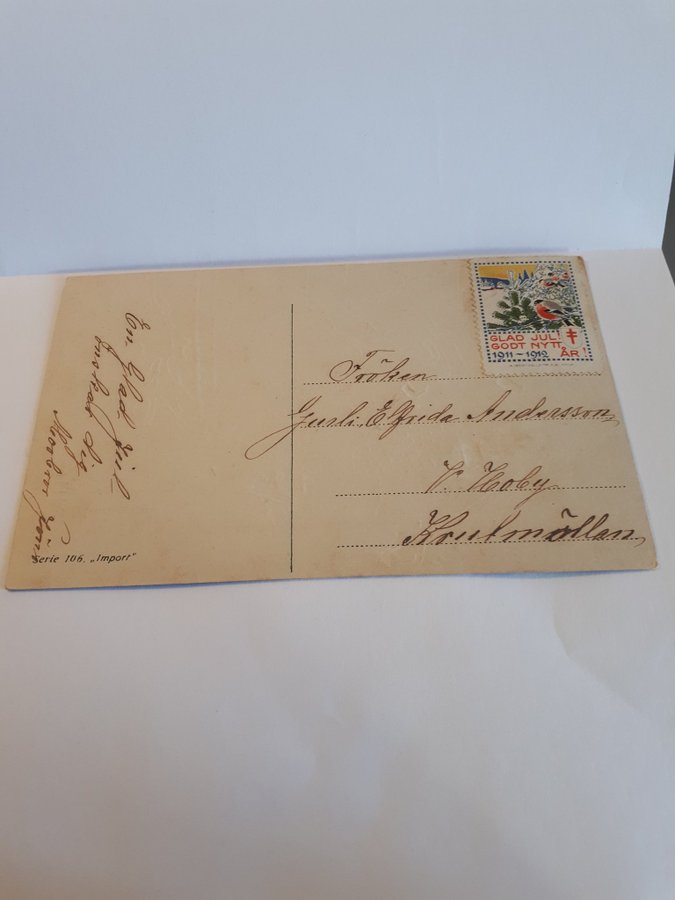 En Glad jul
önskas dig
af
Fröken
Elfrida Andersson
V. Hoby
Serie 106. „Import"
GLAD JUL!
GODT NYTT
1911-1912 ÅR